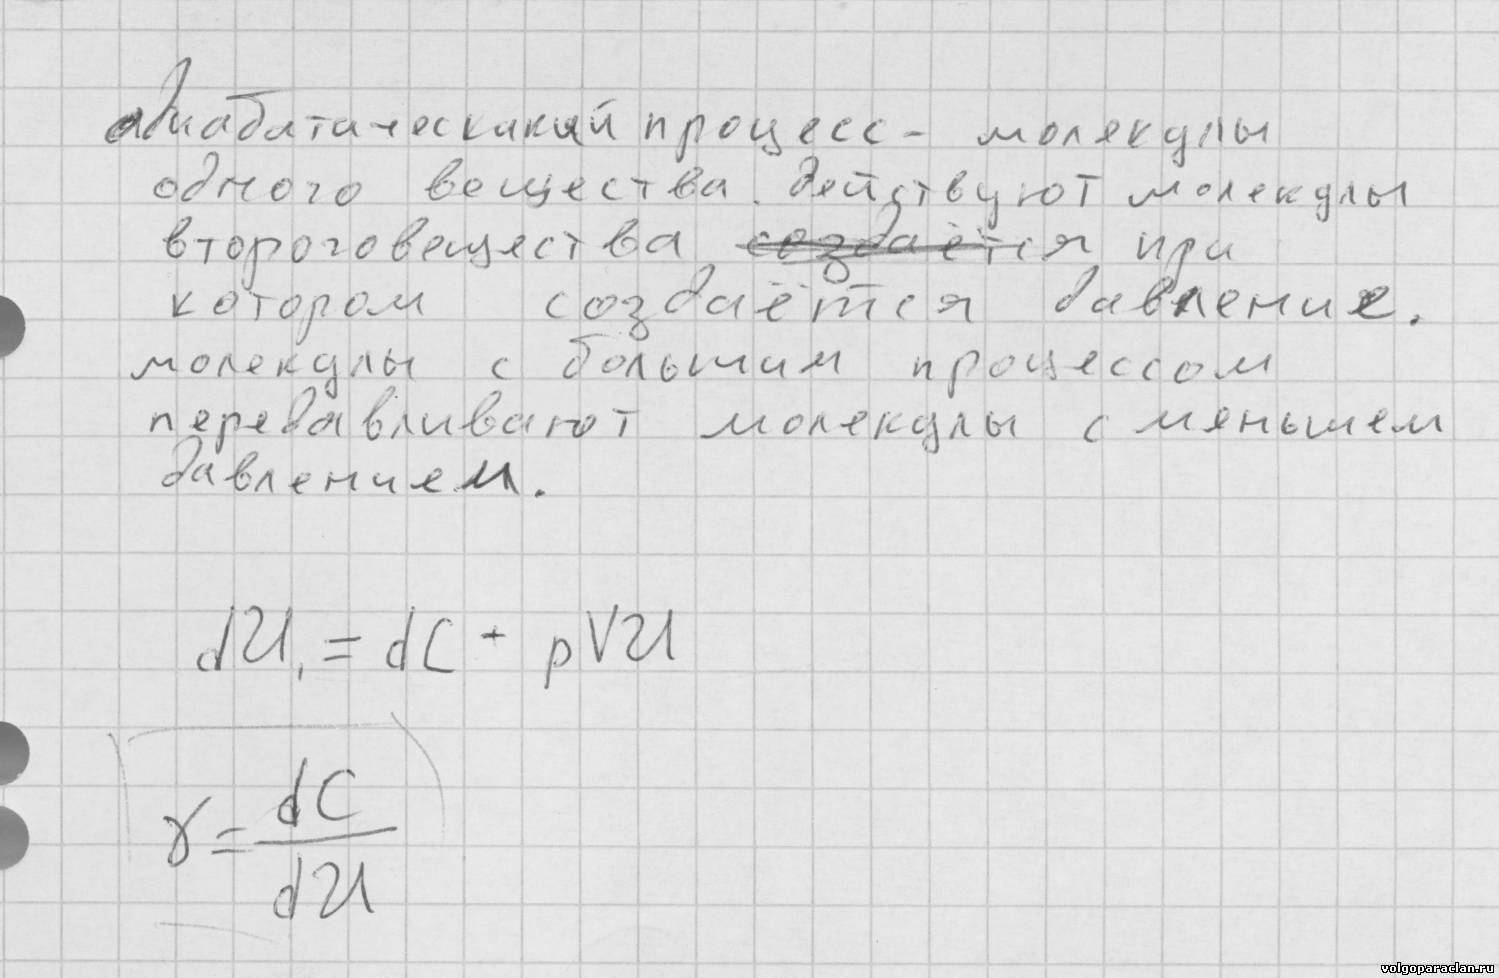 адиабатаческакий процесс - молекулы
одного вещества действуют молекулы
второго вещества создаётся при
котором создаётся давление.
молекулы с большим процессом
передавливают молекулы с мяньшем
давлением.
dU, = dC + pVU
γ = dC
dU
volgoparaclan.ru